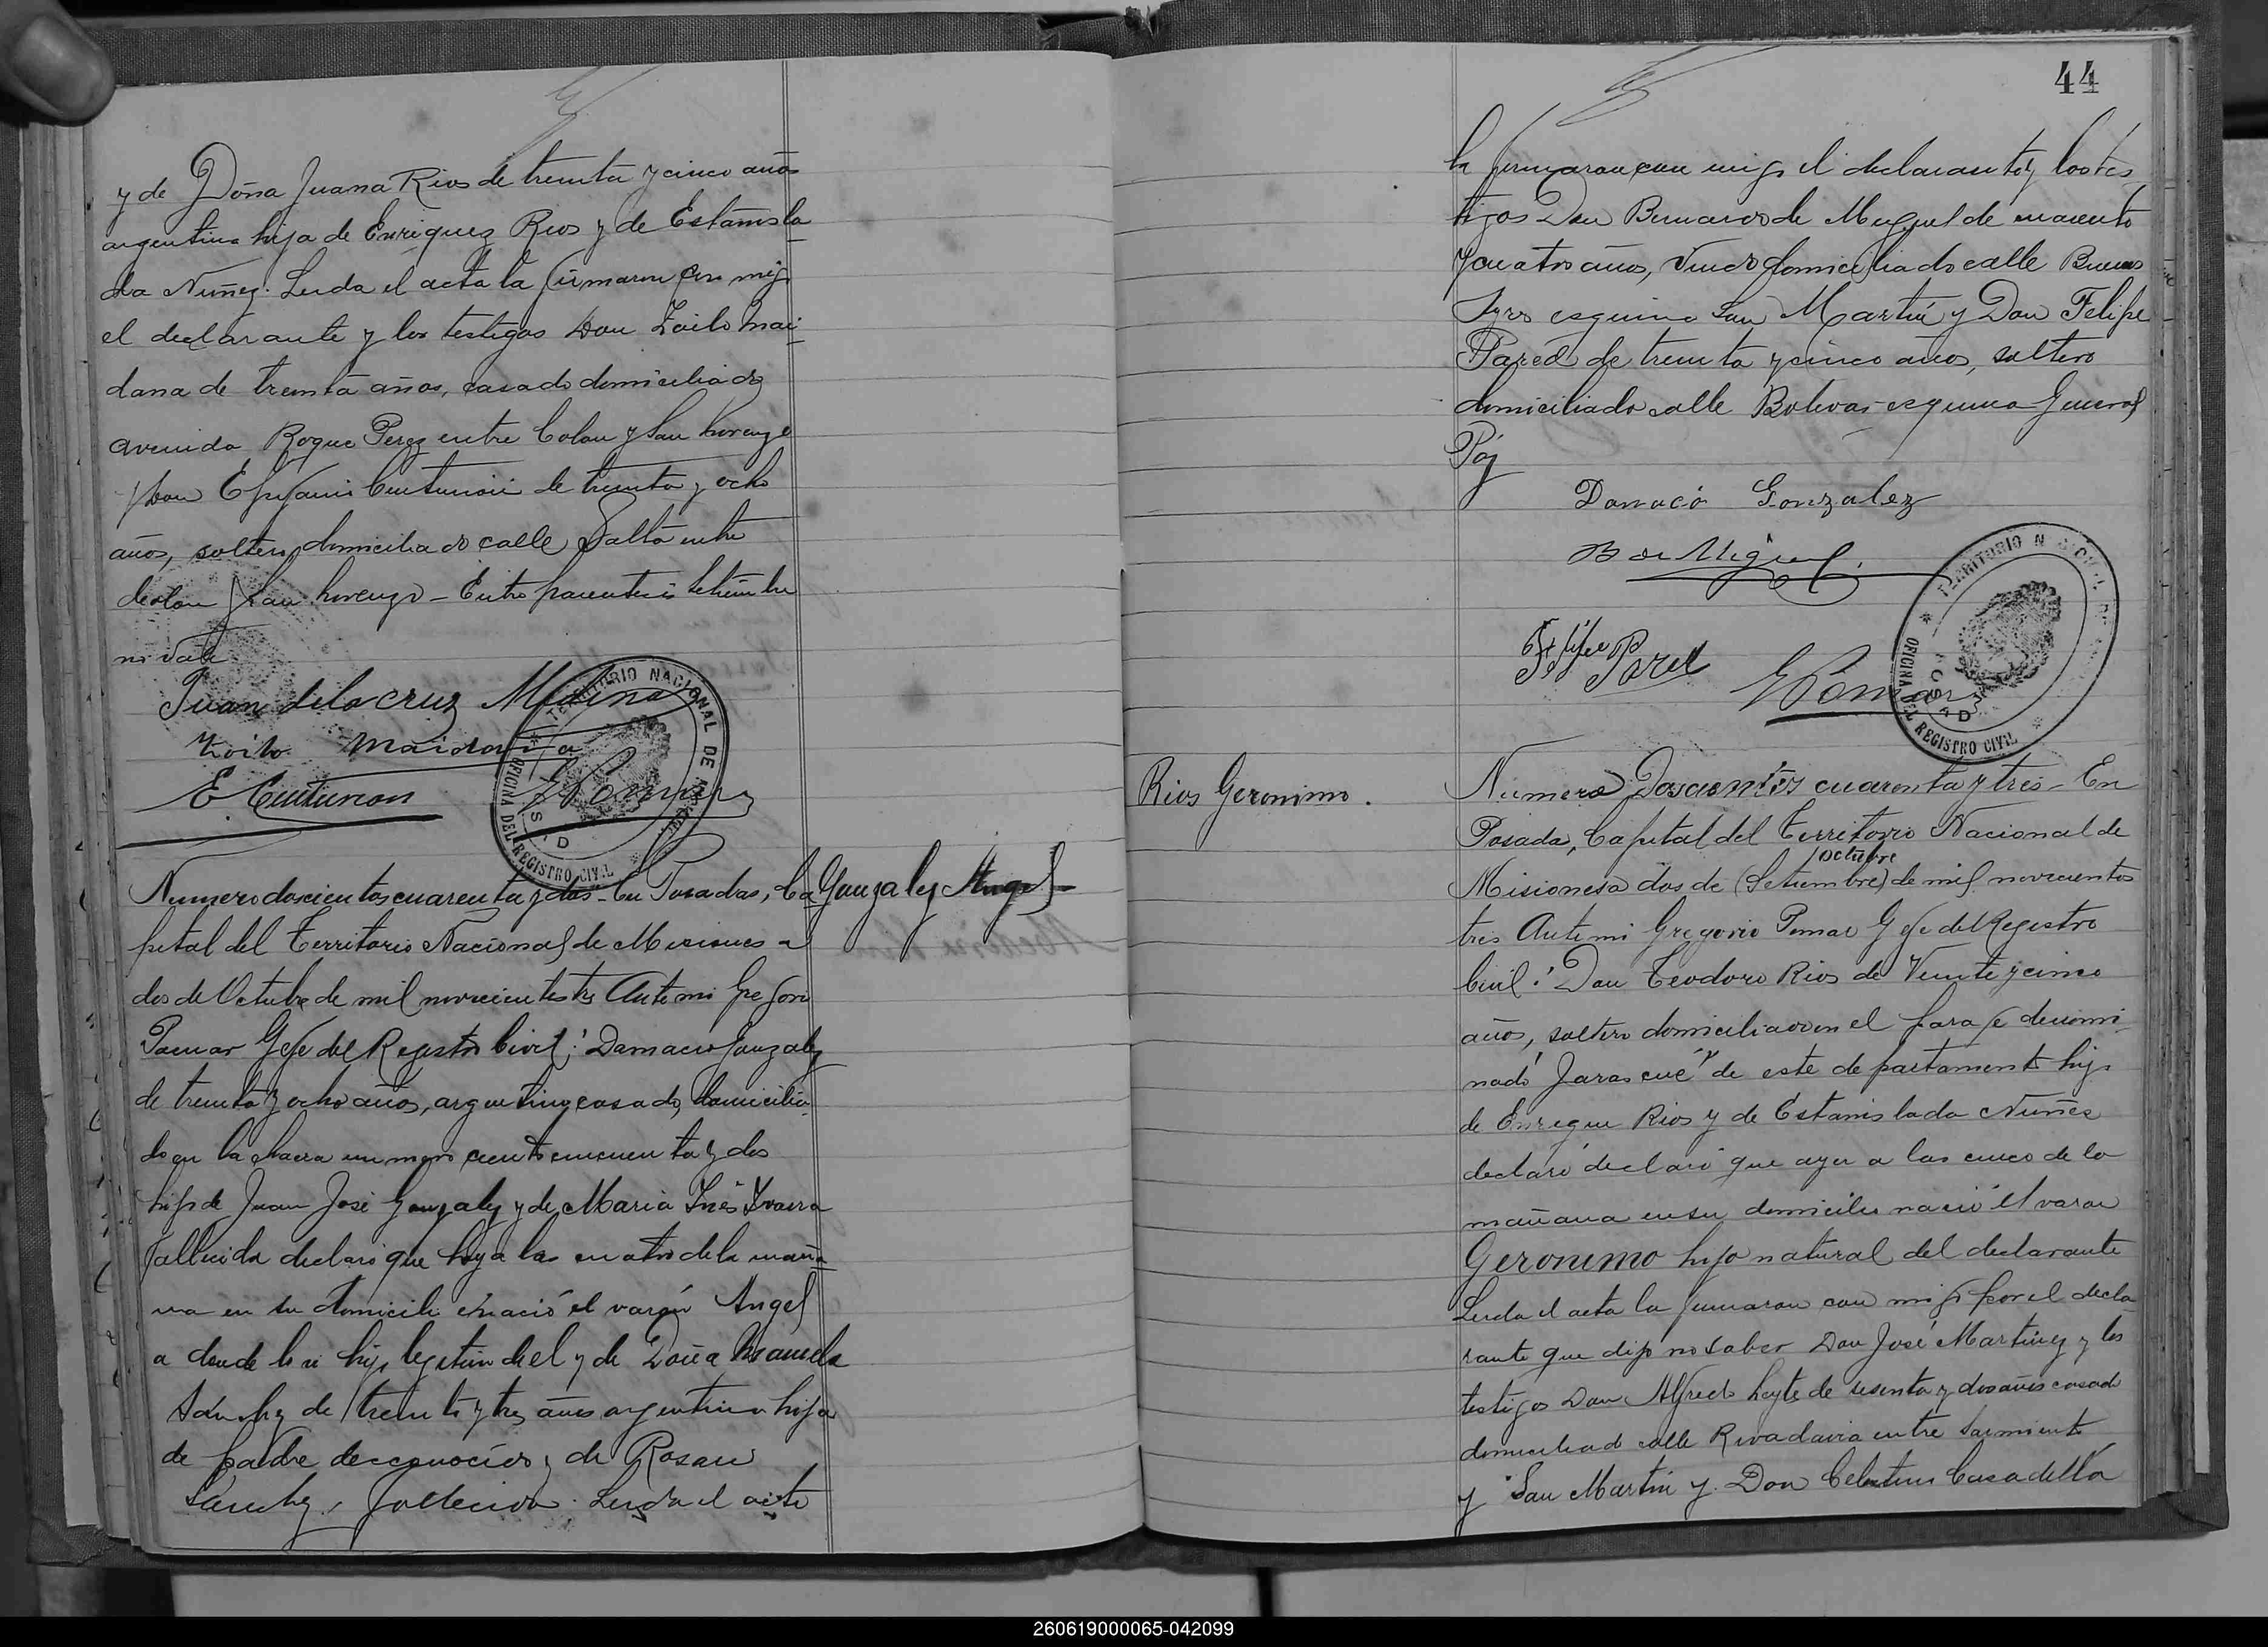 y de Doña Juana Rios de treinta y cinco años
argentina hija de Enriquez Rios y de Estanisla
da Nuñez. Leida el acta la firmaron con migo
el declarante y los testigos Don Zoilo Mai
dana de treinta años, casado domiciliado
avenida Roque Perez entre Colon y San Lorenzo
y Don Centurion de treinta y ocho
años, soltero, domiciliado calle Salta entre
Colon y San Lorenzo - Entre parentesis Setiembre
no vale
Juan de la cruz Medina
Zoilo Maidana
E Centurion
G Pomar
TERRITORIO NACIONAL DE
OFICINA DEL REGISTRO CIVIL
Gonzalez Angel
Numero doscientos cuarenta y dos - En Posadas, Ca
pital del Territorio Nacional de Misiones a
dos de Octubre de mil novecientos tres Ante mi Gregorio
Pomar Gefe del Registro Civil: Damacio Gonzalez
de treinta y ocho años, argentino, casado, domicilia
do en la chacra numero ciento cincuenta y dos
hijo de Juan José Gonzalez y de Maria Inés
fallecida declaró que hoy a las cuatro de la maña
na en su domicilio nació el varón Angel
a donde hijo legitimo de el y de Doña Manuela
Sanchez de treinta y tres años argentina hija
de padre desconocido y de Rosa
Sanchez, fallecida. Leida el acta
44
la firmaron con migo el declarante y los tes
tigos Don Bernardo de Miguel de cuarenta
y cuatro años, viudo domiciliado calle Buenos
Ayres esquina San Martin y Don Felipe
Pared de treinta y cinco años, soltero
domiciliado calle Bolivar esquina General
Páz
Damacio Gonzalez
B de Miguel
Felipe Pared
G Pomar
TERRITORIO NACIONAL
OFICINA DEL REGISTRO CIVIL
Rios Geronimo.
Numero Doscientos cuarenta y tres - En
Posadas, Capital del Territorio Nacional de
octubre
Misiones a dos de (Setiembre) de mil novecientos
tres Ante mi Gregorio Pomar Gefe del Registro
Civil: Don Teodoro Rios de Veinte y cinco
años, soltero domiciliado en el paraje denomi
nado "Jaras cué" de este departamento hijo
de Enrique Rios y de Estanislada Nuñes
declaró declaró que ayer a las cinco de la
mañana en su domicilio nació el varon
Geronimo hijo natural del declarante
Leida el acta la firmaron con migo por el decla
rante que dijo no saber Don José Martinez y los
testigos Don Alfredo de sesenta y dos años casado
domiciliado calle Rivadavia entre Sarmiento
y San Martin y Don Celestino Casadella
260619000065-042099